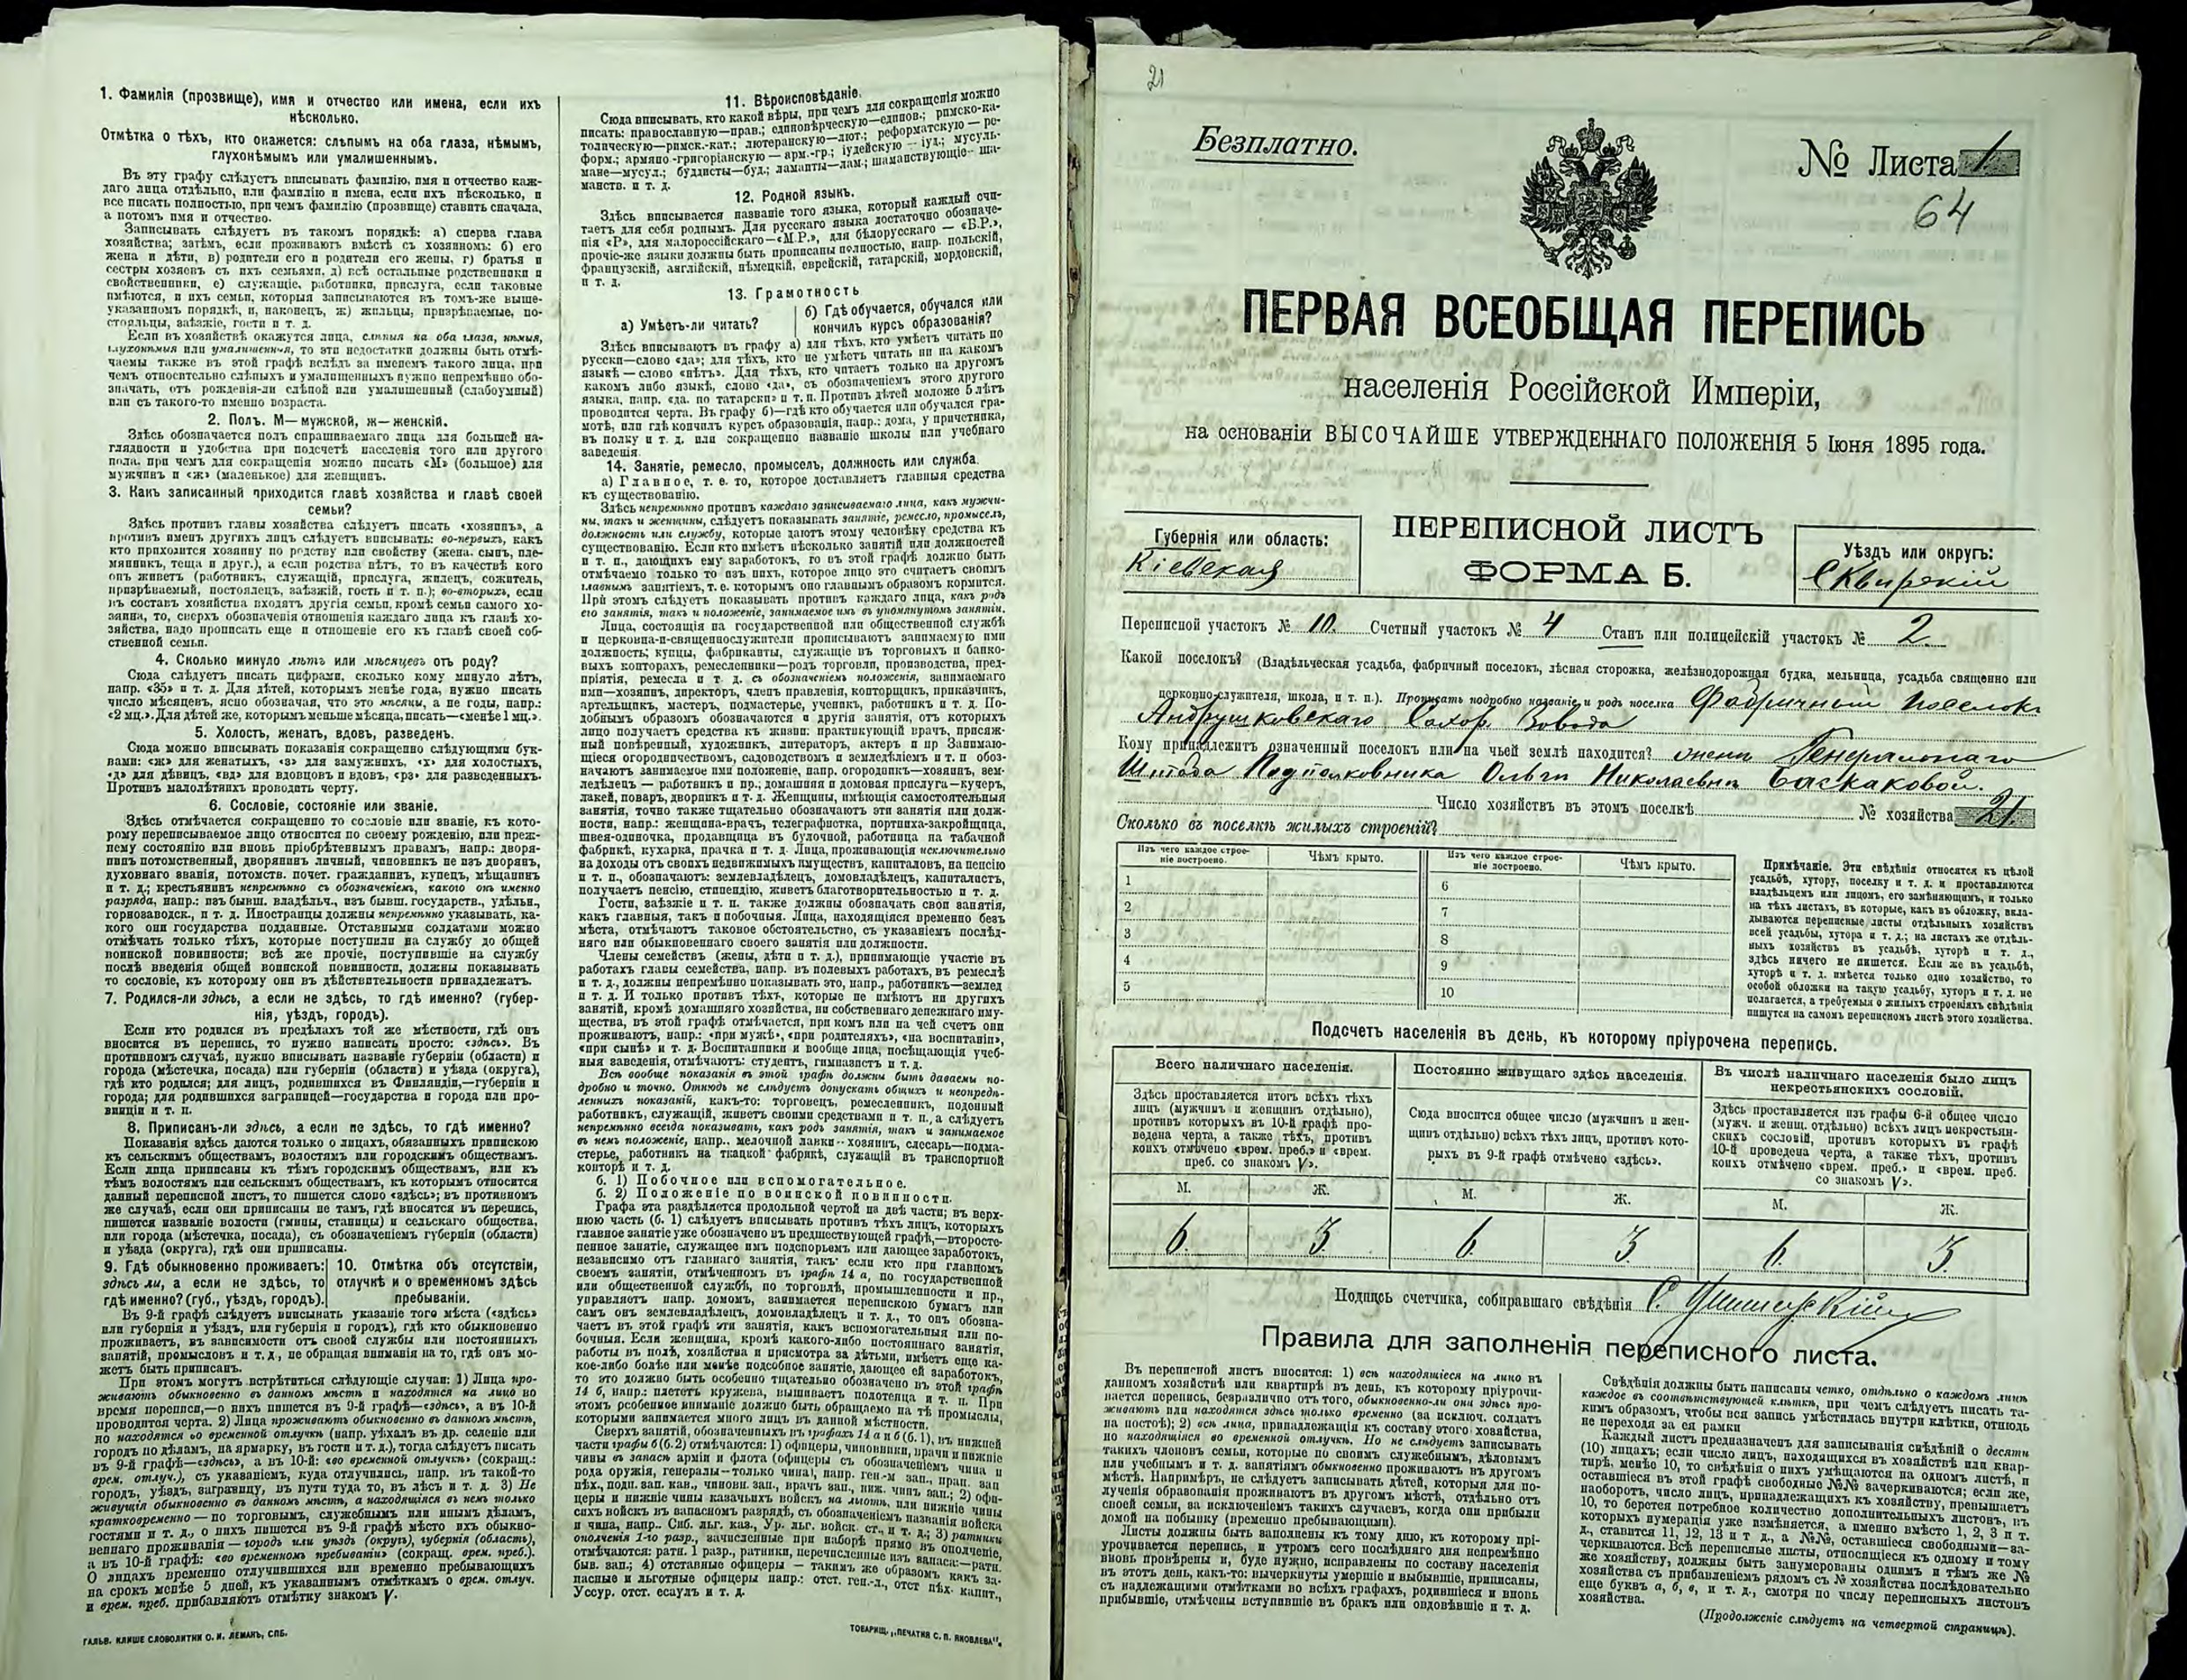 1. Фамилія (прозвище), имя и отчество или имена, если ихъ
нѣсколько.
Отмѣтка о тѣхъ, кто окажется: слѣпымъ на оба глаза, нѣмымъ,
глухонѣмымъ или умалишеннымъ.
Въ эту графу слѣдуетъ вписывать фамилію, имя и отчество каж-
даго лица отдѣльно, или фамилію и имена, если ихъ нѣсколько, и
все писать полностью, при чемъ фамилію (прозвище) ставить сначала,
а потомъ имя и отчество.
Записывать слѣдуетъ въ такомъ порядкѣ: а) сперва глава
хозяйства; затѣмъ, если проживаютъ вмѣстѣ съ хозяиномъ: б) его
жена и дѣти, в) родители его и родители его жены, г) братья и
сестры хозяевъ съ ихъ семьями, д) всѣ остальные родственники и
свойственники, е) служащіе, работники, прислуга, если таковые
имѣются, и ихъ семьи, которыя записываются въ томъ-же выше-
указанномъ порядкѣ, и, наконецъ, ж) жильцы, призрѣваемые, по-
стояльцы, заѣзжіе, гости и т. п.
Если въ хозяйствѣ окажутся лица, слѣпыя на оба глаза, нѣмыя,
глухонѣмыя или умалишенныя, то эти недостатки должны быть отмѣ-
чаемы также въ этой графѣ вслѣдъ за именемъ такого лица, при
чемъ относительно слѣпыхъ и умалишенныхъ нужно непремѣнно обо-
значать, отъ рожденія-ли слѣпой или умалишенный (слабоумный)
или съ такого-то именно возраста.
2. Полъ. М—мужской, ж—женскій.
Здѣсь обозначается полъ спрашиваемаго лица для большей на-
глядности и удобства при подсчетѣ населенія того или другого
пола, при чемъ для сокращенія можно писать «М» (большое) для
мужчинъ и «ж» (маленькое) для женщинъ.
3. Какъ записанный приходится главѣ хозяйства и главѣ своей
семьи?
Здѣсь противъ главы хозяйства слѣдуетъ писать «хозяинъ», а
противъ именъ другихъ лицъ слѣдуетъ вписывать: во-первыхъ, какъ
кто приходится хозяину по родству или свойству (жена, сынъ, пле-
мянникъ, теща и друг.), а если родства нѣтъ, то въ качествѣ кого
онъ живетъ (работникъ, служащій, прислуга, жилецъ, сожитель,
призрѣваемый, постоялецъ, заѣзжій, гость и т. п.); во-вторыхъ, если
въ составъ хозяйства входятъ другія семьи, кромѣ семьи самого хо-
зяина, то, сверхъ обозначенія отношенія каждаго лица къ главѣ хо-
зяйства, надо прописать еще и отношеніе его къ главѣ своей соб-
ственной семьи.
4. Сколько минуло лѣтъ или мѣсяцевъ отъ роду?
Сюда слѣдуетъ писать цифрами, сколько кому минуло лѣтъ,
напр. «35» и т. д. Для дѣтей, которымъ менѣе года, нужно писать
число мѣсяцевъ, ясно обозначая, что это мѣсяцы, а не годы, напр.:
«2 мц.». Для дѣтей же, которымъ меньше мѣсяца, писать—«менѣе 1 мц.».
5. Холостъ, женатъ, вдовъ, разведенъ.
Сюда можно вписывать показанія сокращенно слѣдующими бук-
вами: «ж» для женатыхъ, «з» для замужнихъ, «х» для холостыхъ,
«д» для дѣвицъ, «вд» для вдовцовъ и вдовъ, «рз» для разведенныхъ.
Противъ малолѣтнихъ проводить черту.
6. Сословіе, состояніе или званіе.
Здѣсь отмѣчается сокращенно то сословіе или званіе, къ кото-
рому переписываемое лицо относится по своему рожденію, или преж-
нему состоянію или вновь пріобрѣтеннымъ правамъ, напр.: дворя-
нинъ потомственный, дворянинъ личный, чиновникъ не изъ дворянъ,
духовнаго званія, потомств. почет. гражданинъ, купецъ, мѣщанинъ
и т. д.; крестьянинъ непремѣнно съ обозначеніемъ, какого онъ именно
разряда, напр.: изъ бывш. владѣльч., изъ бывш. государств., удѣльн.,
горнозаводск., и т. д. Иностранцы должны непремѣнно указывать, ка-
кого они государства подданные. Отставными солдатами можно
отмѣчать только тѣхъ, которые поступили на службу до общей
воинской повинности; всѣ же прочіе, поступившіе на службу
послѣ введенія общей воинской повинности, должны показывать
то сословіе, къ которому они въ дѣйствительности принадлежатъ.
7. Родился-ли здѣсь, а если не здѣсь, то гдѣ именно? (губер-
нія, уѣздъ, городъ).
Если кто родился въ предѣлахъ той же мѣстности, гдѣ онъ
вносится въ перепись, то нужно написать просто: «здѣсь». Въ
противномъ случаѣ, нужно вписывать названіе губерніи (области) и
города (мѣстечка, посада) или губерніи (области) и уѣзда (округа),
гдѣ кто родился; для лицъ, родившихся въ Финляндіи,—губерніи и
города; для родившихся заграницей—государства и города или про-
винціи и т. п.
8. Приписанъ-ли здѣсь, а если не здѣсь, то гдѣ именно?
Показанія здѣсь даются только о лицахъ, обязанныхъ припискою
къ сельскимъ обществамъ, волостямъ или городскимъ обществамъ.
Если лица приписаны къ тѣмъ городскимъ обществамъ, или къ
тѣмъ волостямъ или сельскимъ обществамъ, къ которымъ относится
данный переписной листъ, то пишется слово «здѣсь»; въ противномъ
же случаѣ, если они приписаны не тамъ, гдѣ вносятся въ перепись,
пишется названіе волости (гмины, станицы) и сельскаго общества,
или города (мѣстечка, посада), съ обозначеніемъ губерніи (области)
и уѣзда (округа), гдѣ они приписаны.
9. Гдѣ обыкновенно проживаетъ:
здѣсь ли, а если не здѣсь, то
гдѣ именно? (губ., уѣздъ, городъ).
10. Отмѣтка объ отсутствіи,
отлучкѣ и о временномъ здѣсь
пребываніи.
Въ 9-й графѣ слѣдуетъ вписывать указаніе того мѣста («здѣсь»
или губернія и уѣздъ, или губернія и городъ), гдѣ кто обыкновенно
проживаетъ, въ зависимости отъ своей службы или постоянныхъ
занятій, промысловъ и т. д., не обращая вниманія на то, гдѣ онъ мо-
жетъ быть приписанъ.
При этомъ могутъ встрѣтиться слѣдующіе случаи: 1) Лица про-
живаютъ обыкновенно въ данномъ мѣстѣ и находятся на лицо во
время переписи,—о нихъ пишется въ 9-й графѣ—«здѣсь», а въ 10-й
проводится черта. 2) Лица проживаютъ обыкновенно въ данномъ мѣстѣ,
но находятся во временной отлучкѣ (напр. уѣхалъ въ др. селеніе или
городъ по дѣламъ, на ярмарку, въ гости и т. д.), тогда слѣдуетъ писать
въ 9-й графѣ—«здѣсь», а въ 10-й: «во временной отлучкѣ» (сокращ.:
врем. отлуч.), съ указаніемъ, куда отлучились, напр. въ такой-то
городъ, уѣздъ, заграницу, въ пути туда то, въ лѣсъ и т. д. 3) Не
живущія обыкновенно въ данномъ мѣстѣ, а находящіяся въ немъ только
кратковременно — по торговымъ, служебнымъ или инымъ дѣламъ,
гостями и т. д., о нихъ пишется въ 9-й графѣ мѣсто ихъ обыкно-
веннаго проживанія — городъ или уѣздъ (округъ), губернія (область),
а въ 10-й графѣ: «во временномъ пребываніи» (сокращ. врем. преб.).
О лицахъ временно отлучившихся или временно пребывающихъ
на срокъ менѣе 5 дней, къ указаннымъ отмѣткамъ о врем. отлуч.
и врем. преб. прибавляютъ отмѣтку знакомъ V.
ГАЛЬВ. КЛИШЕ СЛОВОЛИТНИ О. И. ЛЕМАНЪ, СПБ.
11. Вѣроисповѣданіе.
Сюда вписывать, кто какой вѣры, при чемъ для сокращенія можно
писать: православную—прав.; единовѣрческую—единов.; римско-ка-
толическую—римск.-кат.; лютеранскую—лют.; реформатскую — ре-
форм.; армяно-григоріанскую — арм.-гр.; іудейскую — іуд.; мусуль-
мане—мусул.; буддисты—буд.; ламаиты—лам.; шаманствующіе—ша-
манств. и т. д.
12. Родной языкъ.
Здѣсь вписывается названіе того языка, который каждый счи-
таетъ для себя роднымъ. Для русскаго языка достаточно обозначе-
нія «Р», для малороссійскаго—«М.Р.», для бѣлорусскаго — «Б.Р.»,
прочіе-же языки должны быть прописаны полностью, напр. польскій,
французскій, англійскій, нѣмецкій, еврейскій, татарскій, мордовскій,
и т. д.
13. Грамотность
а) Умѣетъ-ли читать?
б) Гдѣ обучается, обучался или
кончилъ курсъ образованія?
Здѣсь вписываютъ въ графу а) для тѣхъ, кто умѣетъ читать по
русски—слово «да»; для тѣхъ, кто не умѣетъ читать ни на какомъ
языкѣ — слово «нѣтъ». Для тѣхъ, кто читаетъ только на другомъ
какомъ либо языкѣ, слово «да», съ обозначеніемъ этого другого
языка, напр. «да. по татарски» и т. п. Противъ дѣтей моложе 5 лѣтъ
проводится черта. Въ графу б)—гдѣ кто обучается или обучался гра-
мотѣ, или гдѣ кончилъ курсъ образованія, напр.: дома, у причетника,
въ полку и т. д. или сокращенно названіе школы или учебнаго
заведенія.
14. Занятіе, ремесло, промыселъ, должность или служба.
а) Главное, т. е. то, которое доставляетъ главныя средства
къ существованію.
Здѣсь непремѣнно противъ каждаго записываемаго лица, какъ мужчи-
ны, такъ и женщины, слѣдуетъ показывать занятіе, ремесло, промыселъ,
должность или службу, которые даютъ этому человѣку средства къ
существованію. Если кто имѣетъ нѣсколько занятій или должностей
и т. п., дающихъ ему заработокъ, то въ этой графѣ должно быть
отмѣчаемо только то изъ нихъ, которое лицо это считаетъ своимъ
главнымъ занятіемъ, т. е. которымъ оно главнымъ образомъ кормится.
При этомъ слѣдуетъ показывать противъ каждаго лица, какъ родъ
его занятія, такъ и положеніе, занимаемое имъ въ упомянутомъ занятіи.
Лица, состоящія на государственной или общественной службѣ
и церковно-и-священнослужители прописываютъ занимаемую ими
должность; купцы, фабриканты, служащіе въ торговыхъ и банко-
выхъ конторахъ, ремесленники—родъ торговли, производства, пред-
пріятія, ремесла и т. д. съ обозначеніемъ положенія, занимаемаго
ими—хозяинъ, директоръ, членъ правленія, конторщикъ, приказчикъ,
артельщикъ, мастеръ, подмастерье, ученикъ, работникъ и т. д. По-
добнымъ образомъ обозначаются и другія занятія, отъ которыхъ
лицо получаетъ средства къ жизни: практикующій врачъ, присяж-
ный повѣренный, художникъ, литераторъ, актеръ и пр. Занимаю-
щіеся огородничествомъ, садоводствомъ и земледѣліемъ и т. п. обоз-
начаютъ занимаемое ими положеніе, напр. огородникъ—хозяинъ, зем-
ледѣлецъ — работникъ и пр.; домашняя и домовая прислуга—кучеръ,
лакей, поваръ, дворникъ и т. д. Женщины, имѣющія самостоятельныя
занятія, точно также тщательно обозначаютъ эти занятія или долж-
ности, напр.: женщина-врачъ, телеграфистка, портниха-закройщица,
швея-одиночка, продавщица въ булочной, работница на табачной
фабрикѣ, кухарка, прачка и т. д. Лица, проживающія исключительно
на доходы отъ своихъ недвижимыхъ имуществъ, капиталовъ, на пенсію
и т. п., обозначаютъ: землевладѣлецъ, домовладѣлецъ, капиталистъ,
получаетъ пенсію, стипендію, живетъ благотворительностью и т. д.
Гости, заѣзжіе и т. п. также должны обозначать свои занятія,
какъ главныя, такъ и побочныя. Лица, находящіяся временно безъ
мѣста, отмѣчаютъ таковое обстоятельство, съ указаніемъ послѣд-
няго или обыкновеннаго своего занятія или должности.
Члены семействъ (жены, дѣти и т. д.), принимающіе участіе въ
работахъ главы семейства, напр. въ полевыхъ работахъ, въ ремеслѣ
и т. д., должны непремѣнно показывать это, напр., работникъ—землед
и т. д. И только противъ тѣхъ, которые не имѣютъ ни другихъ
занятій, кромѣ домашняго хозяйства, ни собственнаго денежнаго иму-
щества, въ этой графѣ отмѣчается, при комъ или на чей счетъ они
проживаютъ, напр.: «при мужѣ», «при родителяхъ», «на воспитаніи»,
«при сынѣ» и т. д. Воспитанники и вообще лица, посѣщающія учеб-
ныя заведенія, отмѣчаютъ: студентъ, гимназистъ и т. д.
Всѣ вообще показанія въ этой графѣ должны быть даваемы по-
дробно и точно. Отнюдь не слѣдуетъ допускать общихъ и неопредѣ-
ленныхъ показаній, какъ-то: торговецъ, ремесленникъ, поденный
работникъ, служащій, живетъ своими средствами и т. п., а слѣдуетъ
непремѣнно всегда показывать, какъ родъ занятія, такъ и занимаемое
въ немъ положеніе, напр.. мелочной лавки—хозяинъ, слесарь—подма-
стерье, работникъ на ткацкой фабрикѣ, служащій въ транспортной
конторѣ и т. д.
б. 1) Побочное или вспомогательное.
б. 2) Положеніе по воинской повинности.
Графа эта раздѣляется продольной чертой на двѣ части; въ верх-
нюю часть (б. 1) слѣдуетъ вписывать противъ тѣхъ лицъ, которыхъ
главное занятіе уже обозначено въ предшествующей графѣ,—второсте-
пенное занятіе, служащее имъ подспорьемъ или дающее заработокъ,
независимо отъ главнаго занятія, такъ если кто при главномъ
своемъ занятіи, отмѣченномъ въ графѣ 14 а, по государственной
или общественной службѣ, по торговлѣ, промышленности и пр.,
управляетъ напр. домомъ, занимается перепискою бумагъ или
самъ онъ землевладѣлецъ, домовладѣлецъ и т. д., то онъ обозна-
чаетъ въ этой графѣ эти занятія, какъ вспомогательныя или по-
бочныя. Если женщина, кромѣ какого-либо постояннаго занятія,
работы въ полѣ, хозяйства и присмотра за дѣтьми, имѣетъ еще ка-
кое-либо болѣе или менѣе подсобное занятіе, дающее ей заработокъ,
то это должно быть особенно тщательно обозначено въ этой графѣ
14 б, напр.: плететъ кружева, вышиваетъ полотенца и т. п. При
этомъ особенное вниманіе должно быть обращаемо на тѣ промыслы,
которыми занимается много лицъ въ данной мѣстности.
Сверхъ занятій, обозначенныхъ въ графахъ 14 а и б (б. 1), въ нижней
части графы б (б. 2) отмѣчаются: 1) офицеры, чиновники, врачи и нижніе
чины въ запасѣ арміи и флота (офицеры съ обозначеніемъ чина и
рода оружія, генералы—только чина), напр. ген-м зап., прап. зап
пѣх., подп. зап. кав., чиновн. зап., врачъ зап., ниж. чинъ зап.; 2) офи-
церы и нижніе чины казачьихъ войскъ на льготѣ, или нижніе чины
сихъ войскъ въ запасномъ разрядѣ, съ обозначеніемъ названія войска
и чина, напр.. Сиб. льг. каз., Ур. льг. войск. ст., и т. д.; 3) ратники
ополченія 1-го разр., зачисленные при наборѣ прямо въ ополченіе,
отмѣчаются: ратн. 1 разр., ратники, перечисленные изъ запаса:—ратн.
быв. зап.; 4) отставные офицеры — такимъ же образомъ какъ за-
пасные и льготные офицеры напр.: отст. ген.-л., отст пѣх. капит.,
Уссур. отст. есаулъ и т. д.
ТОВАРИЩ. „ПЕЧАТНЯ С. П. ЯКОВЛЕВА".
21
Безплатно.
№ Листа 1.
64
ПЕРВАЯ ВСЕОБЩАЯ ПЕРЕПИСЬ
населенія Россійской Имперіи,
на основаніи ВЫСОЧАЙШЕ УТВЕРЖДЕННАГО ПОЛОЖЕНІЯ 5 Іюня 1895 года.
Губернія или область:
Кіевская
ПЕРЕПИСНОЙ ЛИСТЪ
ФОРМА Б.
Уѣздъ или округъ:
Сквирскій
Переписной участокъ № 10. Счетный участокъ № 4 Станъ или полицейскій участокъ № 2.
Какой поселокъ? (Владѣльческая усадьба, фабричный поселокъ, лѣсная сторожка, желѣзнодорожная будка, мельница, усадьба священно или
церковно-служителя, школа, и т. п.). Прописать подробно названіе и родъ поселка Фабричный поселокъ
Андрушковскаго Сахар. Завода
Кому принадлежитъ означенный поселокъ или на чьей землѣ находится? жены Генеральнаго
Штаба Подполковника Ольги Николаевны Баскаковой.
Число хозяйствъ въ этомъ поселкѣ № хозяйства 21.
Сколько въ поселкѣ жилыхъ строеній?
Изъ чего каждое строе-
ніе построено.
Чѣмъ крыто.
Изъ чего каждое строе-
ніе построено.
Чѣмъ крыто.
1
2
3
4
5
6
7
8
9
10
Примѣчаніе. Эти свѣдѣнія относятся къ цѣлой
усадьбѣ, хутору, поселку и т. д. и проставляются
владѣльцемъ или лицомъ, его замѣняющимъ, и только
на тѣхъ листахъ, въ которые, какъ въ обложку, вкла-
дываются переписные листы отдѣльныхъ хозяйствъ
всей усадьбы, хутора и т. д.; на листахъ же отдѣль-
ныхъ хозяйствъ въ усадьбѣ, хуторѣ и т. д.,
здѣсь ничего не пишется. Если же въ усадьбѣ,
хуторѣ и т. д. имѣется только одно хозяйство, то
особой обложки на такую усадьбу, хуторъ и т. д. не
полагается, а требуемыя о жилыхъ строеніяхъ свѣдѣнія
пишутся на самомъ переписномъ листѣ этого хозяйства.
Подсчетъ населенія въ день, къ которому пріурочена перепись.
Всего наличнаго населенія.
Здѣсь проставляется итогъ всѣхъ тѣхъ
лицъ (мужчинъ и женщинъ отдѣльно),
противъ которыхъ въ 10-й графѣ про-
ведена черта, а также тѣхъ, противъ
коихъ отмѣчено «врем. преб.» и «врем.
преб. со знакомъ V».
Постоянно живущаго здѣсь населенія.
Сюда вносится общее число (мужчинъ и жен-
щинъ отдѣльно) всѣхъ тѣхъ лицъ, противъ кото-
рыхъ въ 9-й графѣ отмѣчено «здѣсь».
Въ числѣ наличнаго населенія было лицъ
некрестьянскихъ сословій.
Здѣсь проставляется изъ графы 6-й общее число
(мужч. и женщ. отдѣльно) всѣхъ лицъ некрестьян-
скихъ сословій, противъ которыхъ въ графѣ
10-й проведена черта, а также тѣхъ, противъ
коихъ отмѣчено «врем. преб.» и «врем. преб.
со знакомъ V».
М. Ж. М. Ж. М. Ж.
6. 3. 6. 3. 6. 3.
Подпись счетчика, собиравшаго свѣдѣнія
Правила для заполненія переписного листа.
Въ переписной листъ вносятся: 1) всѣ находящіеся на лицо въ
данномъ хозяйствѣ или квартирѣ въ день, къ которому пріурочи-
вается перепись, безразлично отъ того, обыкновенно-ли они здѣсь про-
живаютъ или находятся здѣсь только временно (за исключ. солдатъ
на постоѣ); 2) всѣ лица, принадлежащія къ составу этого хозяйства,
но находящіяся во временной отлучкѣ. Но не слѣдуетъ записывать
такихъ членовъ семьи, которые по своимъ служебнымъ, дѣловымъ
или учебнымъ и т. д. занятіямъ обыкновенно проживаютъ въ другомъ
мѣстѣ. Напримѣръ, не слѣдуетъ записывать дѣтей, которыя для по-
лученія образованія проживаютъ въ другомъ мѣстѣ, отдѣльно отъ
своей семьи, за исключеніемъ такихъ случаевъ, когда они прибыли
домой на побывку (временно пребывающими).
Листы должны быть заполнены къ тому дню, къ которому прі-
урочивается перепись, и утромъ сего послѣдняго дня непремѣнно
вновь провѣрены и, буде нужно, исправлены по составу населенія
въ этотъ день, какъ-то: вычеркнуты умершіе и выбывшіе, приписаны,
съ надлежащими отмѣтками во всѣхъ графахъ, родившіеся и вновь
прибывшіе, отмѣчены вступившіе въ бракъ или овдовѣвшіе и т. д.
Свѣдѣнія должны быть написаны четко, отдѣльно о каждомъ лицѣ
каждое въ соотвѣтствующей клѣткѣ, при чемъ слѣдуетъ писать та-
кимъ образомъ, чтобы вся запись умѣстилась внутри клѣтки, отнюдь
не переходя за ея рамки
Каждый листъ предназначенъ для записыванія свѣдѣній о десяти
(10) лицахъ; если число лицъ, находящихся въ хозяйствѣ или квар-
тирѣ, менѣе 10, то свѣдѣнія о нихъ умѣщаются на одномъ листѣ, и
оставшіеся въ этой графѣ свободные №№ зачеркиваются; если же,
наоборотъ, число лицъ, принадлежащихъ къ хозяйству, превышаетъ
10, то берется потребное количество дополнительныхъ листовъ, въ
которыхъ нумерація уже измѣняется, а именно вмѣсто 1, 2, 3 и т.
д., ставится 11, 12, 13 и т д., а №№, оставшіеся свободными—за-
черкиваются. Всѣ переписные листы, относящіеся къ одному и тому
же хозяйству, должны быть занумерованы однимъ и тѣмъ же №
хозяйства съ прибавленіемъ рядомъ съ № хозяйства послѣдовательно
еще буквъ а, б, в, и т. д., смотря по числу переписныхъ листовъ
хозяйства.
(Продолженіе слѣдуетъ на четвертой страницѣ).